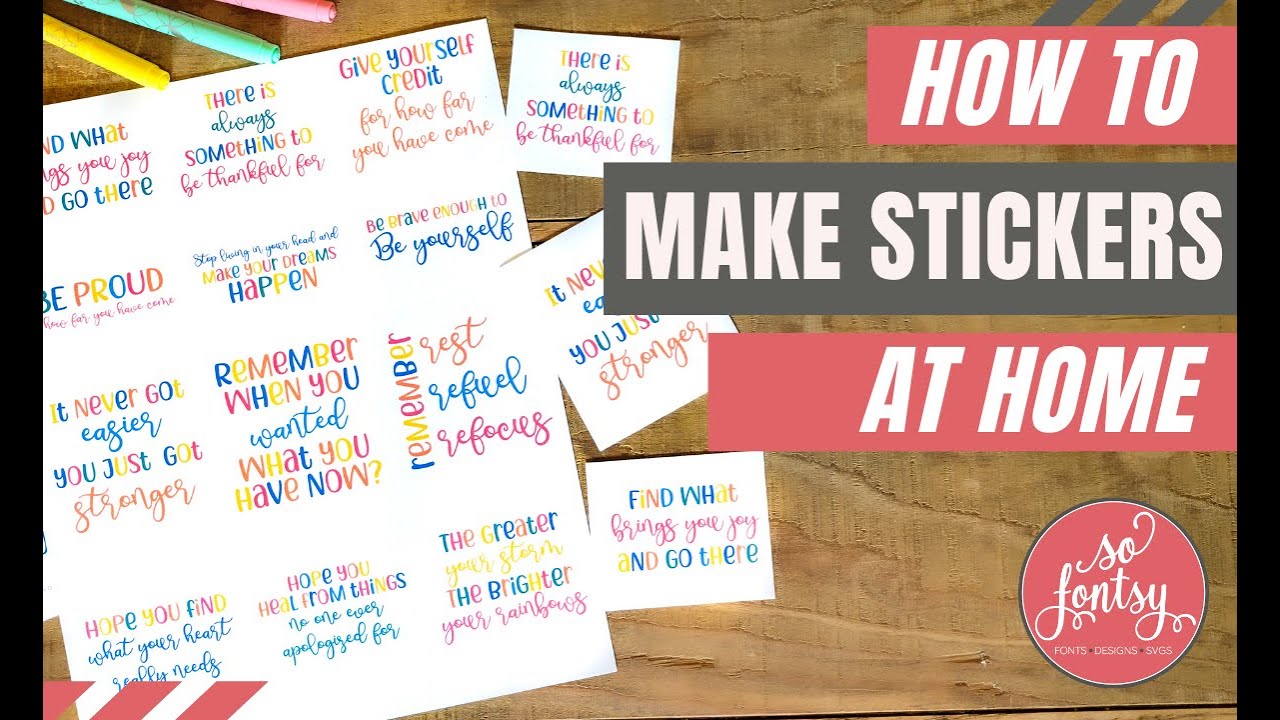 HOW TO
MAKE STICKERS
AT HOME
so
fontsy
FONTS • DESIGNS • SVGS
FIND WHAT
brings you joy
AND GO tHere
tHere is
always
SOMETHING to
be thankful for
Give yourself
credit
for how far
you have come
tHere is
always
SOMETHING to
be thankful for
BE PROUD
how far you have come
Stop living in your head and
MAKE YOUR DREAMS
HAPPEN
Be Brave enough to
Be yourself
It Never Got
easier
YOU JUST Got
stronger
Remember
WHEN YOU
wanted
WHat YOU
Have NOW?
remember
rest
refuel
refocus
It Never Got
easie
YOU JUST
stronger
HOPE YOU FIND
what your heart
really needs
HOPE YOU
Heal from tHings
no one ever
apologised for
THE Greater
your storm
THE Brighter
your rainbows
FIND WHat
brings you joy
aND GO tHere